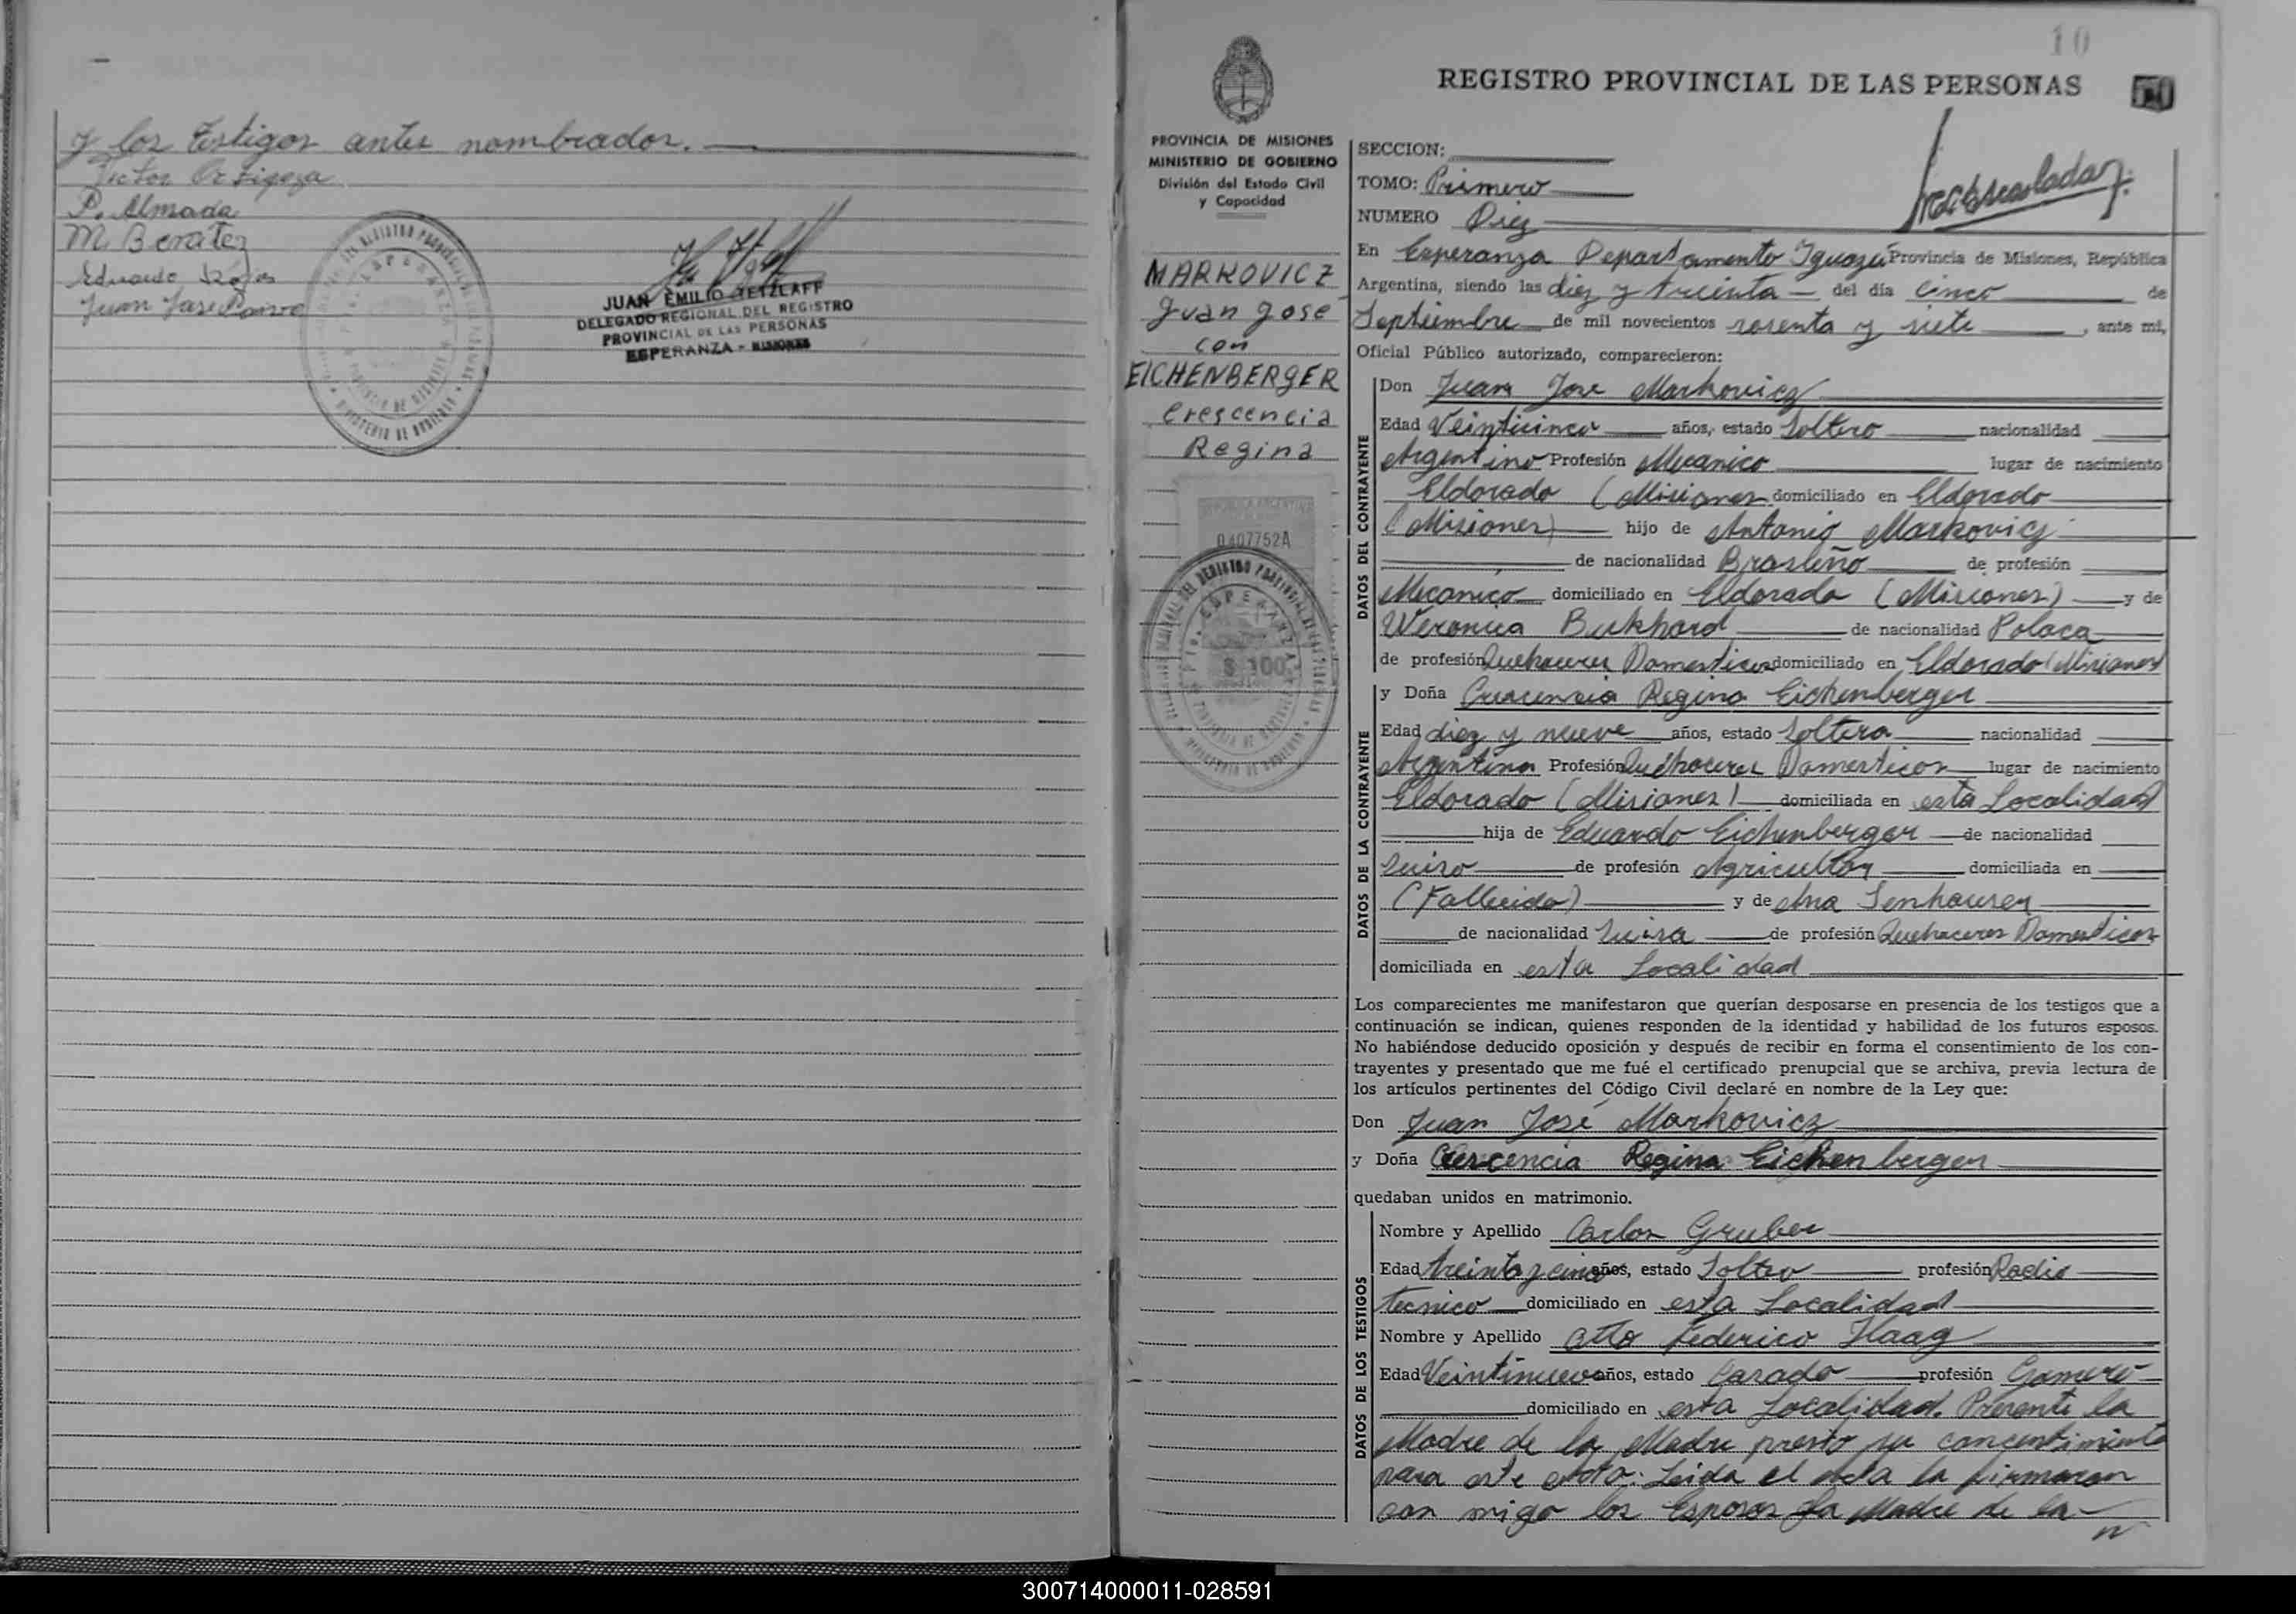 y los Testigos antes nombrados.
Victor Ortigoza
P. Almada
M Benitez
Eduardo Rojas
Juan Jose
JUAN EMILIO TETZLAFF
DELEGADO REGIONAL DEL REGISTRO
PROVINCIAL DE LAS PERSONAS
ESPERANZA - MISIONES
10
REGISTRO PROVINCIAL DE LAS PERSONAS
PROVINCIA DE MISIONES
MINISTERIO DE GOBIERNO
División del Estado Civil
y Capacidad
MARKOVICZ
Juan Jose
con
EICHENBERGER
Crescencia
Regina
REPUBLICA ARGENTINA
0407752A
$ 100
SECCION:
TOMO: Primero
NUMERO Diez
En Esperanza Departamento Iguazú Provincia de Misiones, República
Argentina, siendo las diez y treinta del día cinco de
Septiembre de mil novecientos sesenta y siete, ante mi,
Oficial Público autorizado, comparecieron:
DATOS DEL CONTRAYENTE
Don Juan Jose Markovicz
Edad Veinticinco años, estado Soltero nacionalidad
Argentino Profesión Mecanico lugar de nacimiento
Eldorado (Misiones domiciliado en Eldorado
(Misiones) hijo de Antonio Markovicz
de nacionalidad Brasileño de profesión
Mecanico domiciliado en Eldorado (Misiones) y de
Weronica Burkhard de nacionalidad Polaca
de profesión Quehaceres Domesticos domiciliado en Eldorado (Misiones)
DATOS DE LA CONTRAYENTE
y Doña Crescencia Regina Eichenberger
Edad diez y nueve años, estado Soltera nacionalidad
Argentina Profesión Quehaceres Domesticos lugar de nacimiento
Eldorado (Misiones) domiciliada en esta Localidad
hija de Eduardo Eichenberger de nacionalidad
Suiso de profesión Agricultor domiciliada en
(Fallecido) y de Ana Senhauser
de nacionalidad Suisa de profesión Quehaceres Domesticos
domiciliada en esta Localidad
Los comparecientes me manifestaron que querían desposarse en presencia de los testigos que a
continuación se indican, quienes responden de la identidad y habilidad de los futuros esposos.
No habiéndose deducido oposición y después de recibir en forma el consentimiento de los con-
trayentes y presentado que me fué el certificado prenupcial que se archiva, previa lectura de
los artículos pertinentes del Código Civil declaré en nombre de la Ley que:
Don Juan José Markovicz
y Doña Crescencia Regina Eichenberger
quedaban unidos en matrimonio.
DATOS DE LOS TESTIGOS
Nombre y Apellido Carlos Gruber
Edad treinta y cinco años, estado Soltero profesión Radio
tecnico domiciliado en esta Localidad
Nombre y Apellido Otto Federico Haag
Edad Veintinueve años, estado Casado profesión Gomero
domiciliado en esta Localidad. Presente la
Madre de la Madre presto su concentimiento
para este acto: Leida el acta la firmaron
con migo los Esposos la Madre de la
300714000011-028591